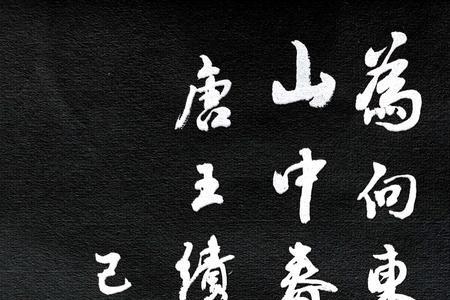 為向東
山中春
唐王績
己